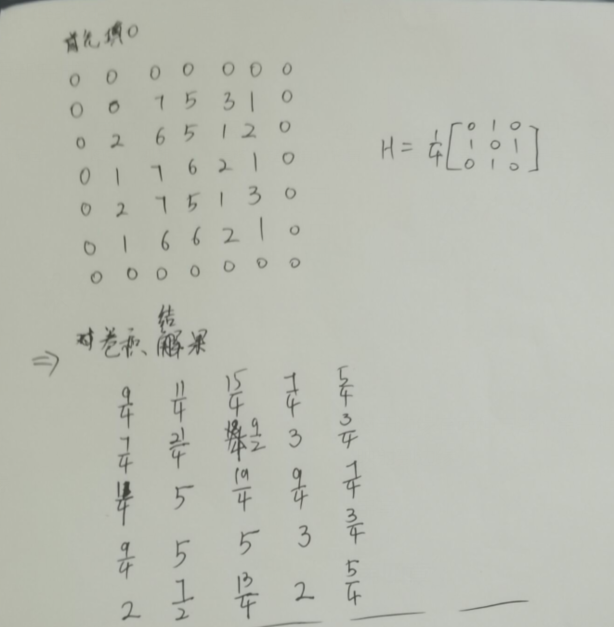 首先填0
0 0 0 0 0 0 0
0 0 7 5 3 1 0
0 2 6 5 1 2 0
0 1 7 6 2 1 0
0 2 7 5 1 3 0
0 1 6 6 2 1 0
0 0 0 0 0 0 0
H = 1/4 [0 1 0
1 0 1
0 1 0]
⇒ 卷积结果
9/4 11/4 15/4 7/4 5/4
7/4 21/4 9/2 3 3/4
5 19/4 9/4 7/4
9/4 5 5 3 3/4
2 7/2 13/4 2 5/4